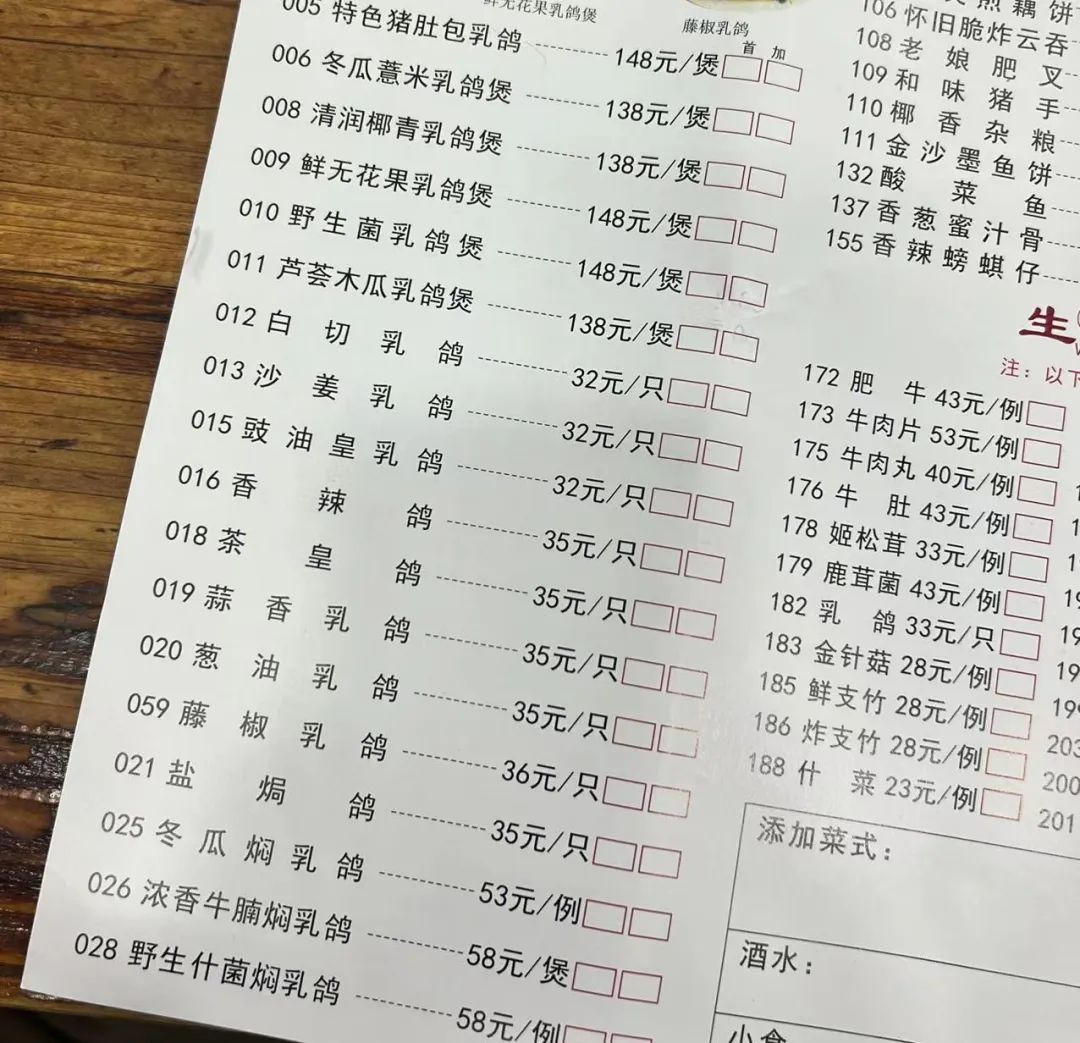 鲜无花果乳鸽煲
藤椒乳鸽
首 加
005 特色猪肚包乳鸽 148元/煲
006 冬瓜薏米乳鸽煲 138元/煲
008 清润椰青乳鸽煲 138元/煲
009 鲜无花果乳鸽煲 148元/煲
010 野生菌乳鸽煲 148元/煲
011 芦荟木瓜乳鸽煲 138元/煲
012 白切乳鸽 32元/只
013 沙姜乳鸽 32元/只
015 豉油皇乳鸽 32元/只
016 香辣鸽 35元/只
018 茶皇鸽 35元/只
019 蒜香乳鸽 35元/只
020 葱油乳鸽 35元/只
059 藤椒乳鸽 36元/只
021 盐焗鸽 35元/只
025 冬瓜焖乳鸽 53元/例
026 浓香牛腩焖乳鸽 58元/煲
028 野生什菌焖乳鸽 58元/例
煎藕饼
106 怀旧脆炸云吞
108 老娘肥叉
109 和味猪手
110 椰香杂粮
111 金沙墨鱼饼
132 酸菜鱼
137 香葱蜜汁骨
155 香辣螃蜞仔
生
注：以下
172 肥牛 43元/例
173 牛肉片 53元/例
175 牛肉丸 40元/例
176 牛肚 43元/例
178 姬松茸 33元/例
179 鹿茸菌 43元/例
182 乳鸽 33元/只
183 金针菇 28元/例
185 鲜支竹 28元/例
186 炸支竹 28元/例
188 什菜 23元/例
203
200
201
添加菜式：
酒水：
小食